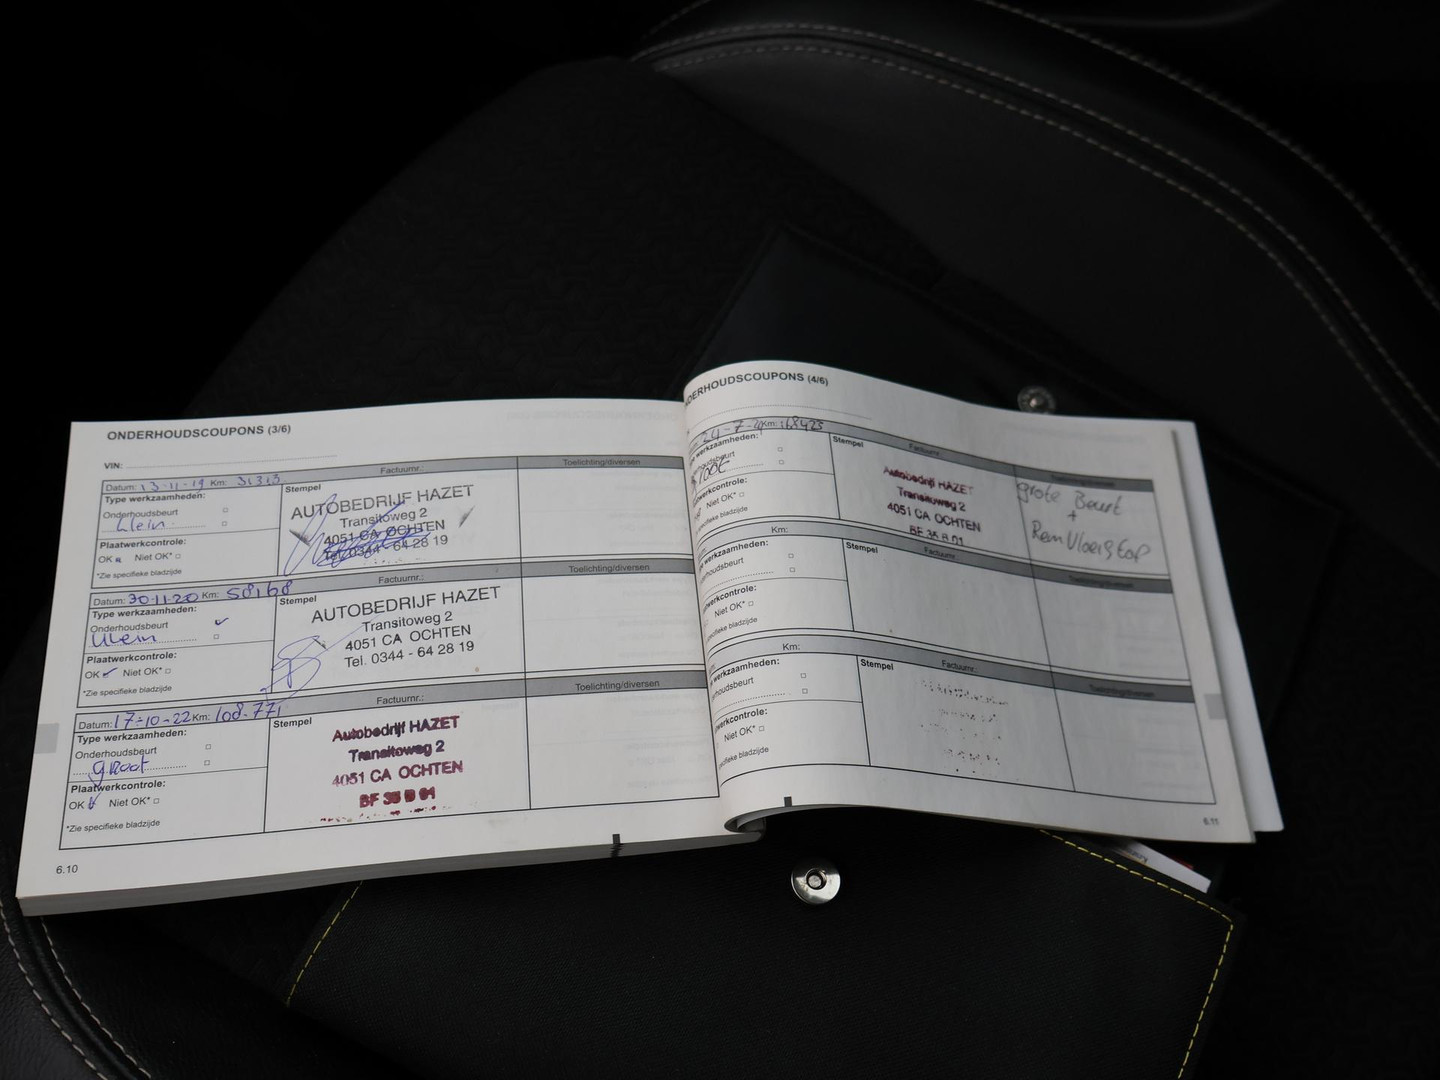 ONDERHOUDSCOUPONS (3/6)
VIN:
Datum: 13-11-19 Km: 31313
Factuurnr.:
Toelichting/diversen
Type werkzaamheden:
Onderhoudsbeurt
klein
Plaatwerkcontrole:
OK Niet OK*
*Zie specifieke bladzijde
Stempel
AUTOBEDRIJF HAZET
Transitoweg 2
4051 CA OCHTEN
Tel. 0344 - 64 28 19
Datum: 30-11-20 Km: 58168
Factuurnr.:
Toelichting/diversen
Type werkzaamheden:
Onderhoudsbeurt
klein
Plaatwerkcontrole:
OK Niet OK*
*Zie specifieke bladzijde
Stempel
AUTOBEDRIJF HAZET
Transitoweg 2
4051 CA OCHTEN
Tel. 0344 - 64 28 19
Datum: 17-10-22 Km: 108.771
Factuurnr.:
Toelichting/diversen
Type werkzaamheden:
Onderhoudsbeurt
groot
Plaatwerkcontrole:
OK Niet OK*
*Zie specifieke bladzijde
Stempel
Autobedrijf HAZET
Transitoweg 2
4051 CA OCHTEN
BF 35 B 01
6.10
DERHOUDSCOUPONS (4/6)
24-7- Km: 168425
Factuurnr.
werkzaamheden:
houdsbeurt
werkcontrole:
Niet OK*
specifieke bladzijde
Stempel
Autobedrijf HAZET
Transitoweg 2
4051 CA OCHTEN
BF 35 B 01
grote Beurt
+
RemVloeistof
Km:
Factuurnr.
Toelichting/diversen
werkzaamheden:
houdsbeurt
werkcontrole:
Niet OK*
specifieke bladzijde
Stempel
Km:
Factuurnr.
Toelichting/diversen
werkzaamheden:
houdsbeurt
werkcontrole:
Niet OK*
specifieke bladzijde
Stempel
6.11